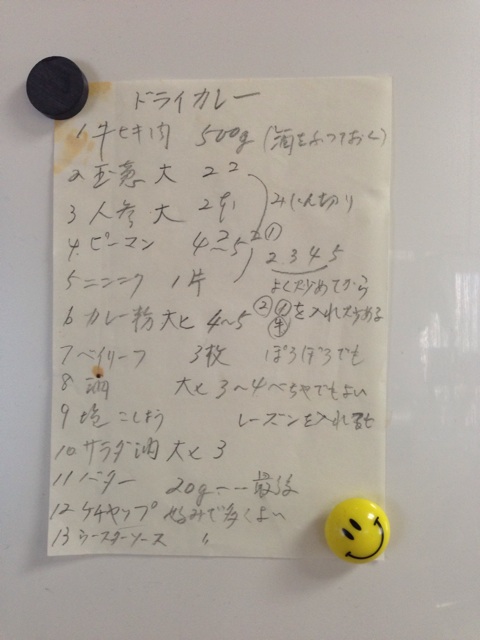 ドライカレー
1 牛ヒキ肉 500g (酒をふっておく)
2 玉葱 大 2コ
3 人参 大 2本 みじん切り
4. ピーマン 4〜5コ ①
2 3 4 5
5 ニンニク 1片 よく炒めてから
6 カレー粉 大ヒ 4〜5 ② ① 牛 を入れ炒める
7 ベイリーフ 3枚 ぽろぽろでも
8 酒 大ヒ 3〜4 べちゃでもよい
9 塩 こしょう レーズンを入れるも
10 サラダ油 大ヒ 3
11 バター 20g 最後
12 ケチャップ 好みで多くよい
13 ウースターソース 〃